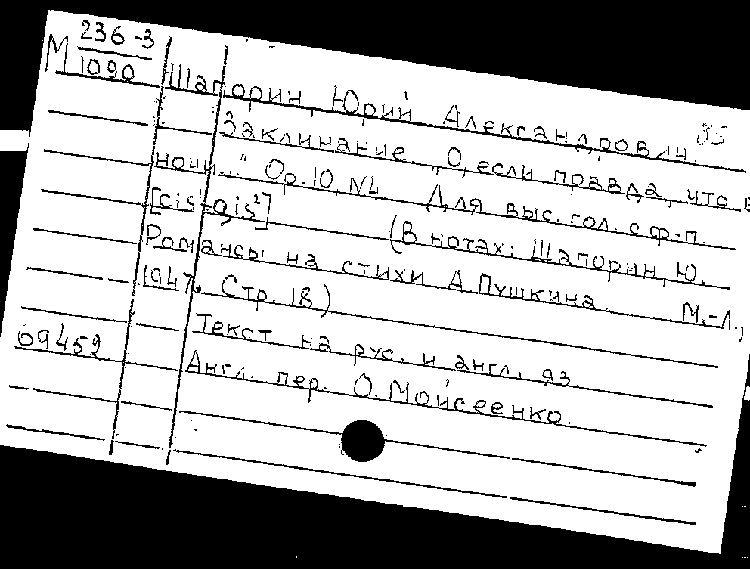 М 236-3
1090
Шапорин, Юрий Александрович. 35
Заклинание. "О, если правда, что в
ночи..." Ор. 10, №4 Для выс. гол. с ф-п.
[cis¹-gis²] (В нотах: Шапорин, Ю.
Романсы на стихи А. Пушкина. М.-Л.,
1947. Стр. 18)
Текст на рус. и англ. яз.
69452 Англ. пер. О. Мойсеенко.